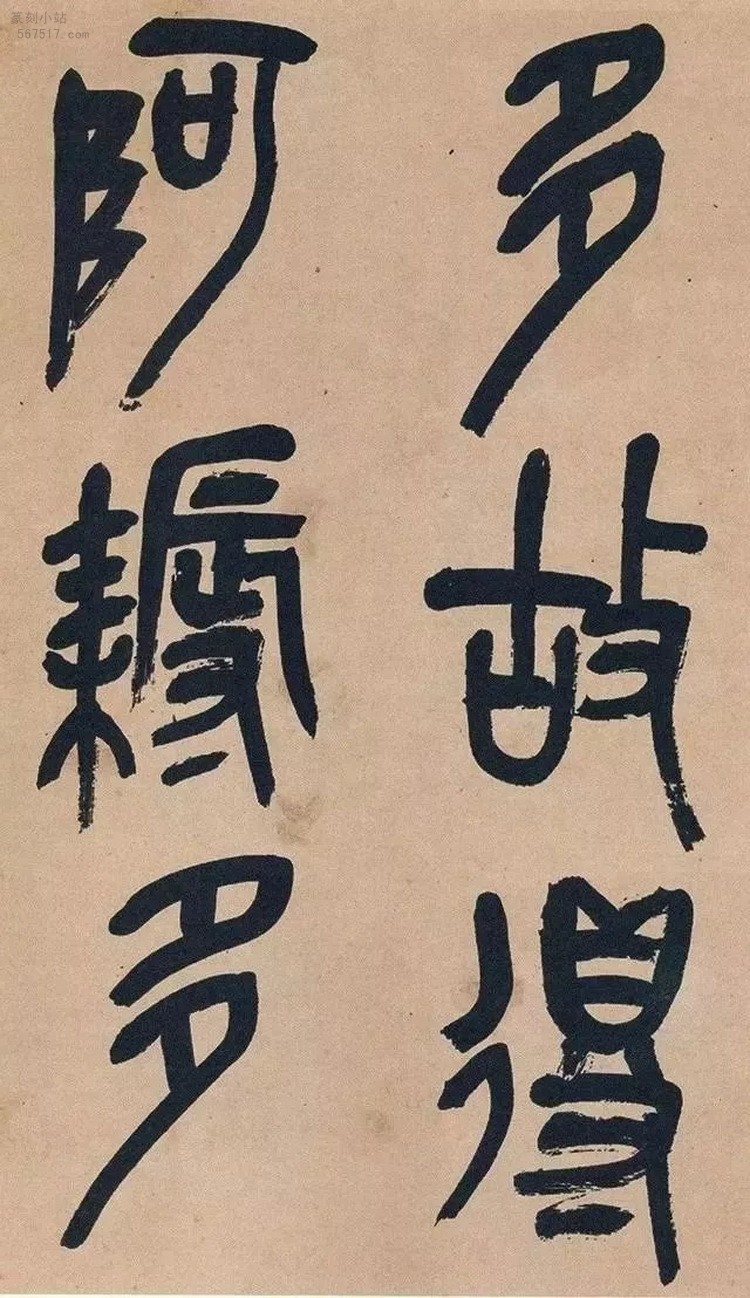 多故得
阿耨多
篆刻小站
567517.com